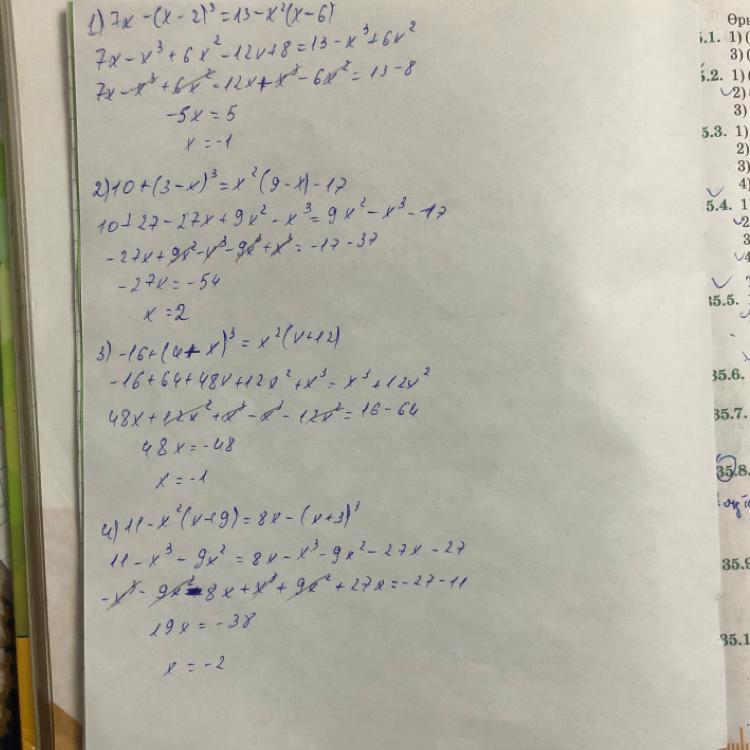 1) 7x-(x-2)³=13-x²(x-6)
7x-x³+6x²-12x+8=13-x³+6x²
7x-x³+6x²-12x+x³-6x²=13-8
-5x=5
x=-1
2) 10+(3-x)³=x²(9-x)-17
10+27-27x+9x²-x³=9x²-x³-17
-27x+9x²-x³-9x²+x³=-17-37
-27x=-54
x=2
3) -16+(4+x)³=x²(x+12)
-16+64+48x+12x²+x³=x³+12x²
48x+12x²+x³-x³-12x²=16-64
48x=-48
x=-1
4) 11-x²(x+9)=8x-(x+3)³
11-x³-9x²=8x-x³-9x²-27x-27
-x³-9x²-8x+x³+9x²+27x=-27-11
19x=-38
x=-2
5.1. 1)(
3)(
5.2. 1)(
2)(
3)
5.3. 1)
2)
3)
4)
5.4. 1
2
3
4
35.5.
35.6.
35.7.
35.8.
35.9
35.1